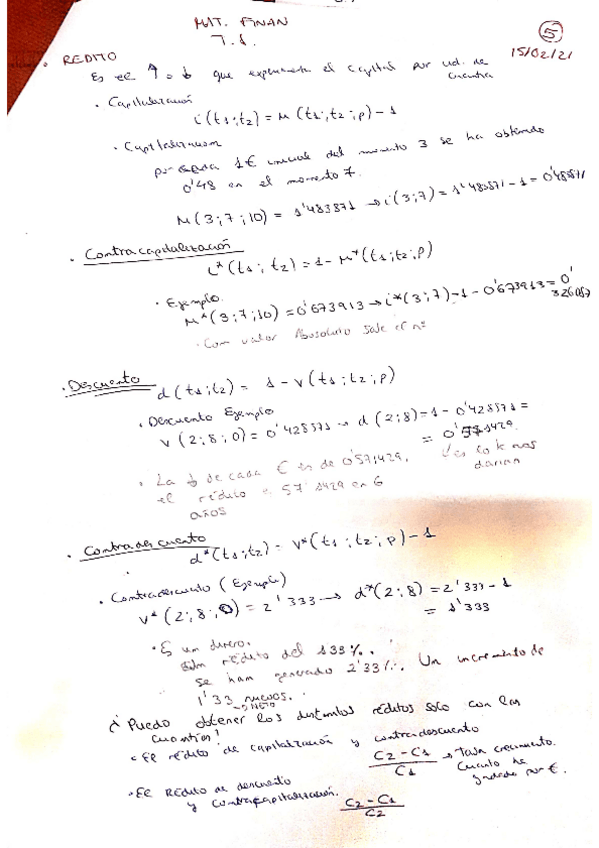 MAT. FINAN
T.1.
5
15/02/21
• REDITO
Es el ↑ o ↓ que experimenta el capital por ud. de
cuantía
• Capitalización
i(t1;t2) = M(t1;t2;p) - 1
• Capitalización
por cada 1€ inicial del momento 3 se ha obtenido
0'48 en el momento 7.
M(3;7;10) = 1'483871 → i(3;7) = 1'483871 - 1 = 0'483871
• Contracapitalización
i*(t1;t2) = 1 - M*(t1;t2;p)
• Ejemplo.
M*(3;7;10) = 0'673913 → i*(3;7) = 1 - 0'673913 = 0'
326087
• Com valor Absoluto sale el nº
• Descuento
d(t1;t2) = 1 - V(t1;t2;p)
• Descuento Ejemplo
V(2;8;0) = 0'428571 → d(2;8) = 1 - 0'428571 =
= 0'571429.
↳ es lo k nos
darian
• La ↓ de cada € es de 0'571429,
el rédito = 57'1429 en 6
años
• Contradescuento
d*(t1;t2) = V*(t1;t2;p) - 1
• Contradescuento (Ejemplo)
V*(2;8;0) = 2'333 → d*(2;8) = 2'333 - 1
= 1'333
• Es un dinero.
rédito del 133%.
se han generado 2'33%. Un incremento de
1'33 nuevos.
→ NETO
¿Puedo obtener los distintos réditos solo con las
cuantías?
• El rédito de capitalización y contradescuento
C2 - C1 / C1 → Tasa crecimiento.
Cuanto he
ganado por €.
• El Rédito de descuento
y contracapitalización.
C2 - C1 / C2